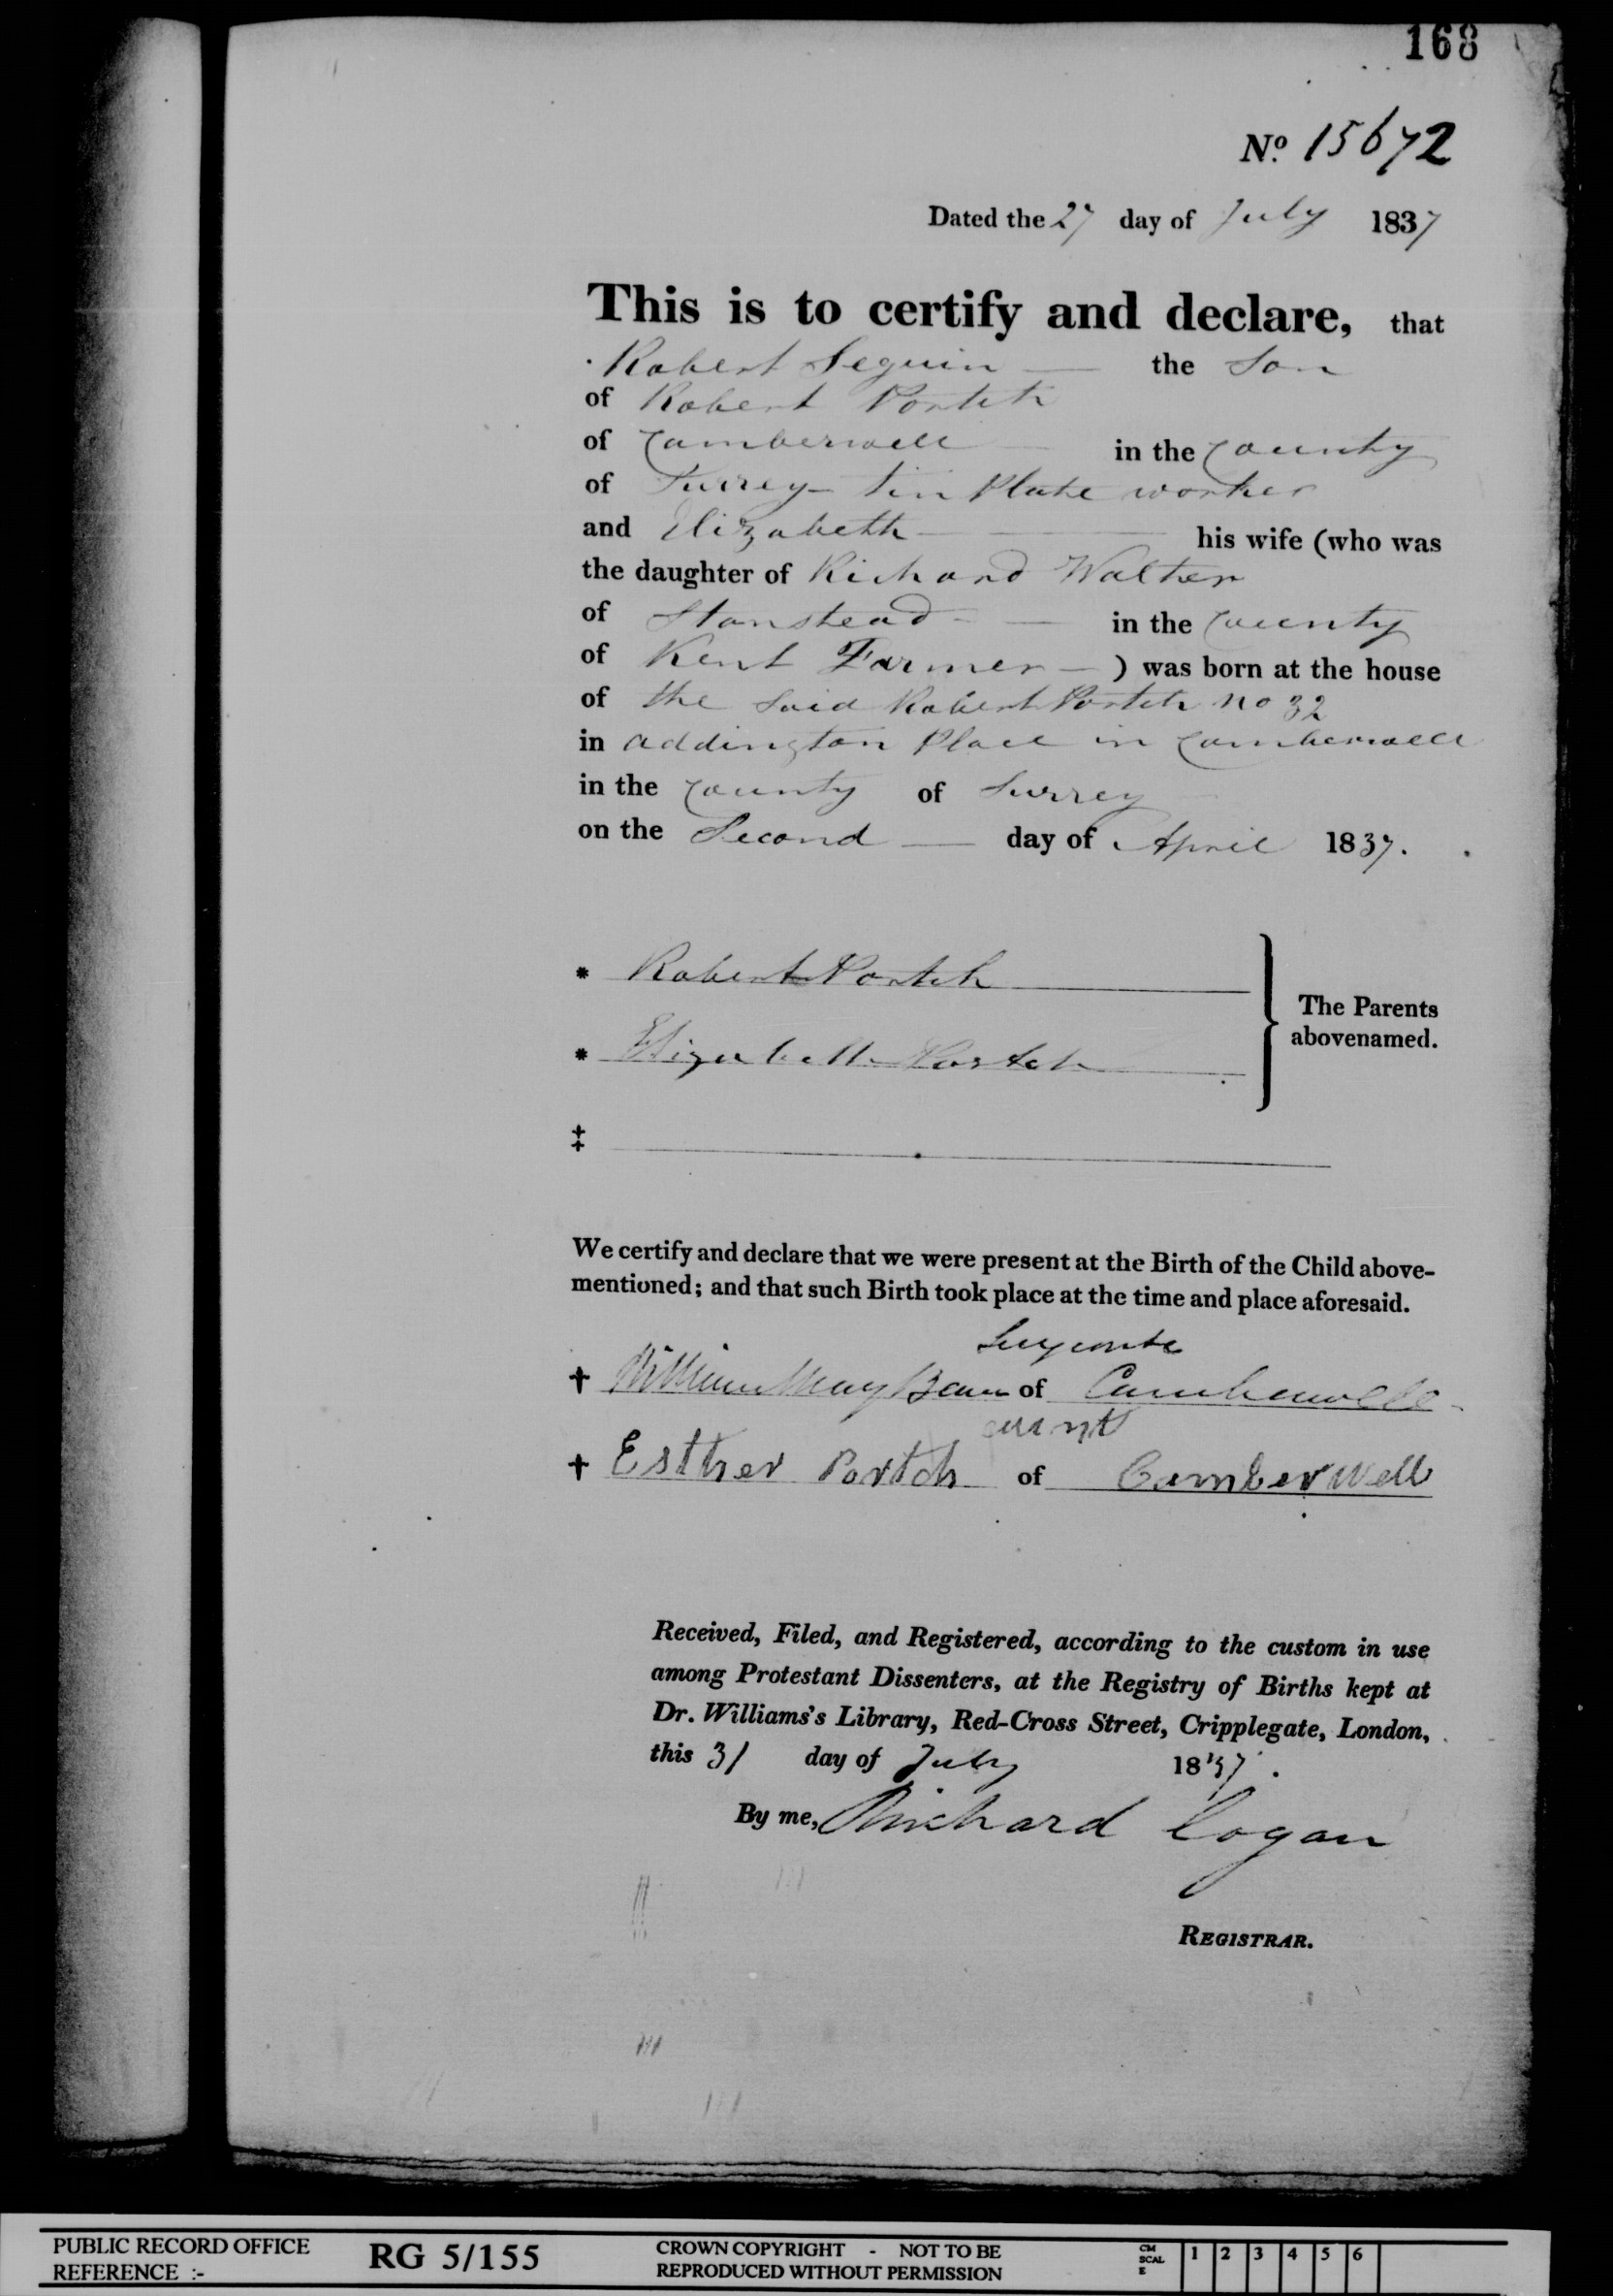 168
No. 15672
Dated the 27 day of July 1837
This is to certify and declare, that
Robert Seguin the Son
of Robert Portch
of Camberwell in the County
of Surrey tin Plate worker
and Elizabeth his wife (who was
the daughter of Richard Walter
of Stanstead in the County
of Kent Farmer ) was born at the house
of the Said Robert Portch No 32
in addington Place in Camberwell
in the County of Surrey
on the Second day of April 1837.
* Robert Portch
* Elizabeth Portch
The Parents
abovenamed.
‡
We certify and declare that we were present at the Birth of the Child above-
mentioned; and that such Birth took place at the time and place aforesaid.
† William May of Camberwell
aunt
† Esther Portch of Camberwell
Received, Filed, and Registered, according to the custom in use
among Protestant Dissenters, at the Registry of Births kept at
Dr. Williams's Library, Red-Cross Street, Cripplegate, London,
this 31 day of July 1837.
By me, Richard Cogan
REGISTRAR.
PUBLIC RECORD OFFICE
REFERENCE :-
RG 5/155
CROWN COPYRIGHT - NOT TO BE
REPRODUCED WITHOUT PERMISSION
CM
SCAL
E
1 2 3 4 5 6